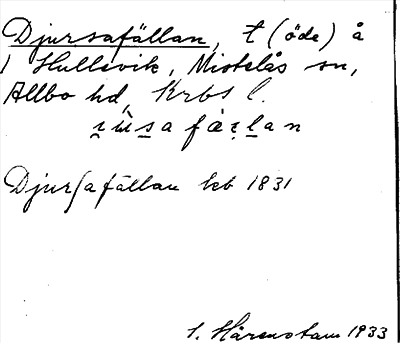 Djursafällan, t (öde) å
1 Hullevik, Mistelås sn,
Allbo hd, Krbs l.
Djursafällan lkb 1831
S. Hårenstam 1933